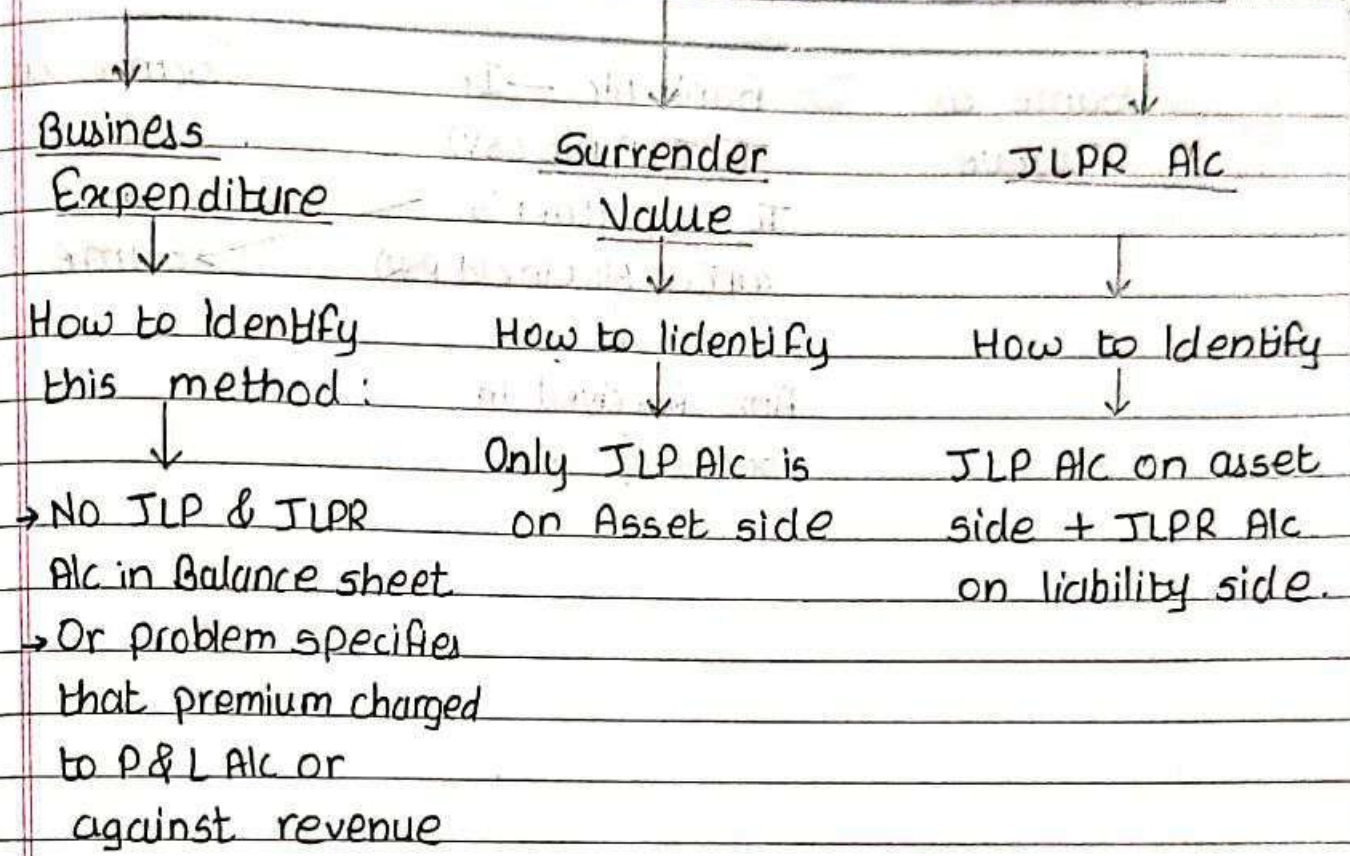 Business
Expenditure
How to Identify
this method:
→ No JLP & JLPR
A/c in Balance sheet
→ Or problem specifies
that premium charged
to P & L A/c or
against revenue
Surrender
Value
How to Iidentify
Only JLP A/c is
on Asset side
JLPR A/c
How to Identify
JLP A/c on asset
side + JLPR A/c
on liability side.